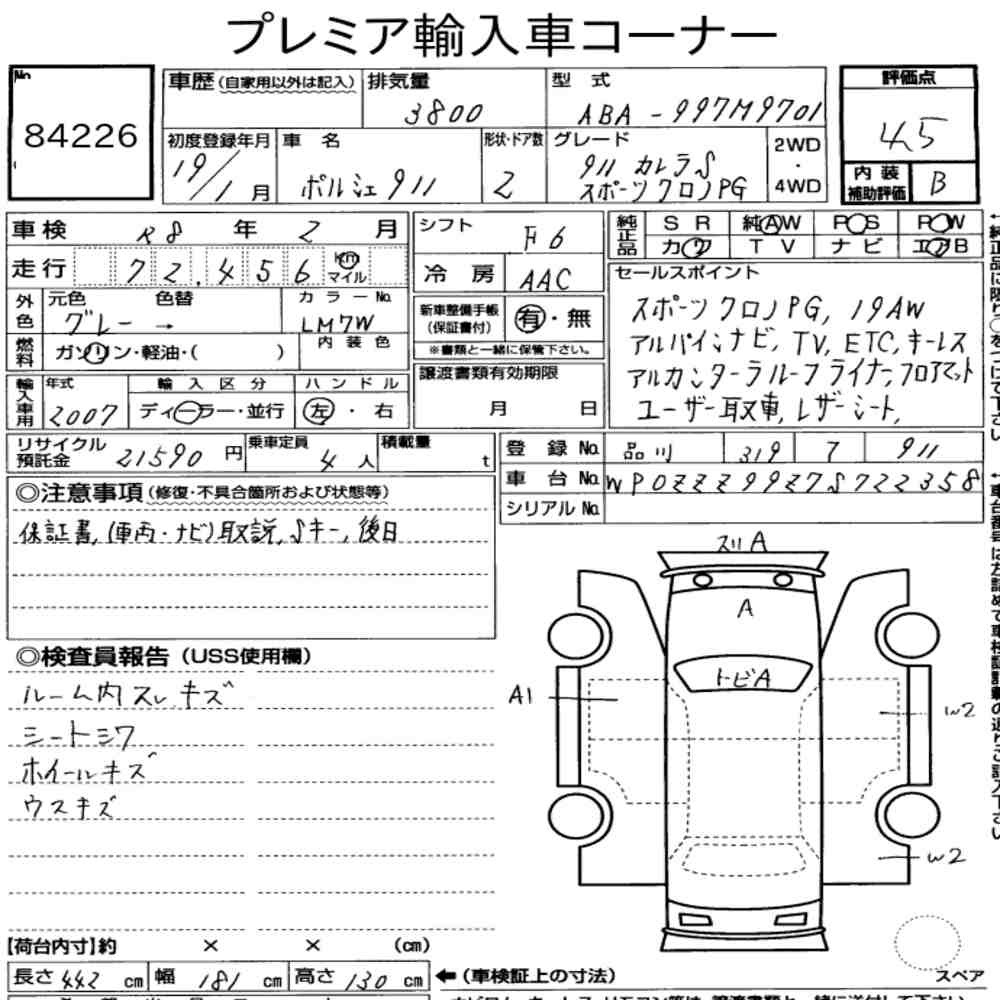 プレミア輸入車コーナー
No.
84226
車歴(自家用以外は記入)
排気量
3800
型 式
ABA-997M9701
評価点
4.5
初度登録年月
19/1月
車 名
ポルシェ911
形状・ドア数
2
グレード
911 カレラS
スポーツクロノPG
2WD
・
4WD
内装
補助評価
B
車検 R8 年 2 月
走行 72,456 km マイル
シフト
F6
冷房
AAC
純正品
SR 純AW PS PW
カワ TV ナビ エアB
外色
元色 色替
グレー →
カラーNo.
LM7W
内装色
燃料
ガソリン・軽油・( )
新車整備手帳
(保証書付)
有・無
※書類と一緒に保管下さい。
セールスポイント
スポーツクロノPG, 19AW
アルパインナビ, TV, ETC, キーレス
アルカンターラルーフライナー,フロアマット
ユーザー取車, レザーシート,
輸入車用
年式
2007
輸入区分
ディーラー・並行
ハンドル
左・右
譲渡書類有効期限
月 日
リサイクル
預託金
21590円
乗車定員
4人
積載量
t
登録No.
品川 319 7 911
車台No.
WP0ZZZ99Z7S722358
シリアルNo.
◎注意事項(修復・不具合箇所および状態等)
保証書,(車両・ナビ)取説,Sキー,後日
◎検査員報告(USS使用欄)
ルーム内スレ.キズ
シートシワ
ホイールキズ
ウスキズ
スリA
A
トビA
A1
W2
W2
スペア
【荷台内寸】約 × × (cm)
長さ 442 cm
幅 181 cm
高さ 130 cm
←(車検証上の寸法)